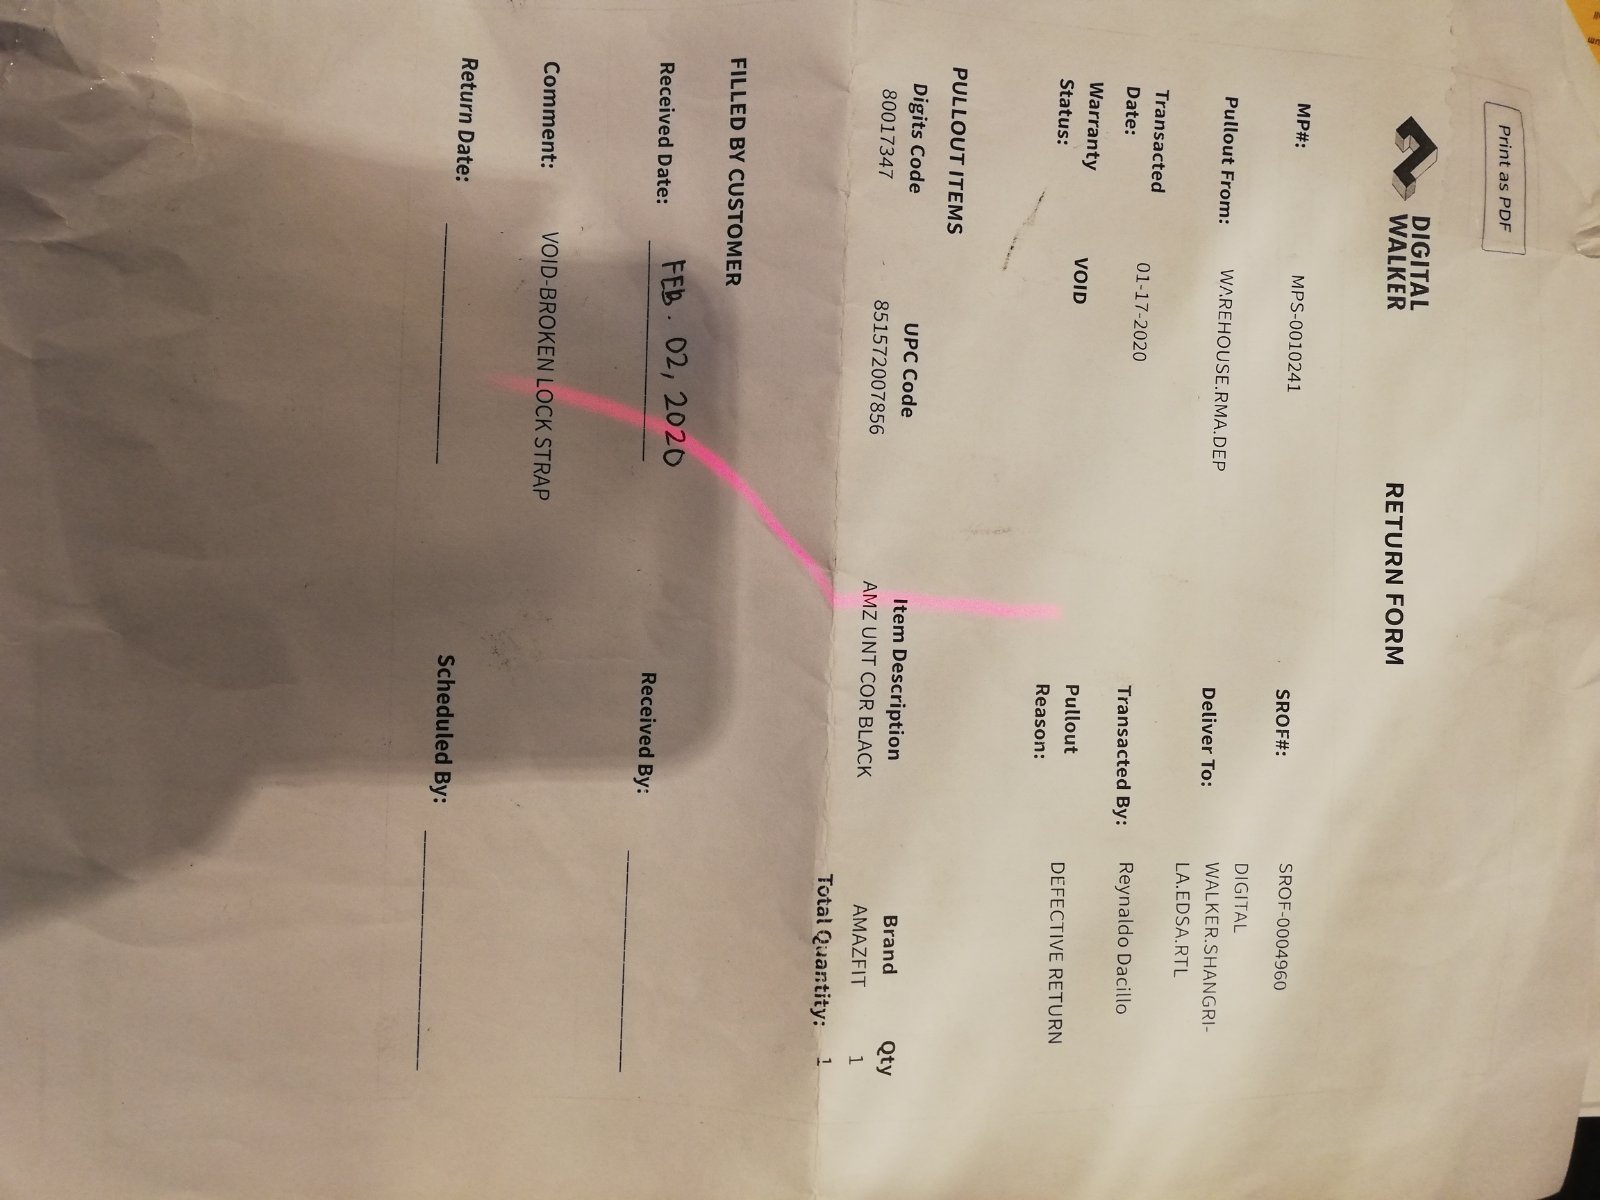 Print as PDF
DIGITAL
WALKER
RETURN FORM
MP#: MPS-0010241 SROF#: SROF-0004960
Pullout From: WAREHOUSE.RMA.DEP Deliver To: DIGITAL
WALKER.SHANGRI-
LA.EDSA.RTL
Transacted
Date: 01-17-2020 Transacted By: Reynaldo Dacillo
Warranty
Status: VOID Pullout
Reason: DEFECTIVE RETURN
PULLOUT ITEMS
Digits Code UPC Code Item Description Brand Qty
80017347 851572007856 AMZ UNT COR BLACK AMAZFIT 1
Total Quantity: 1
FILLED BY CUSTOMER
Received Date: FEB. 02, 2020 Received By:
Comment: VOID-BROKEN LOCK STRAP
Return Date: Scheduled By: